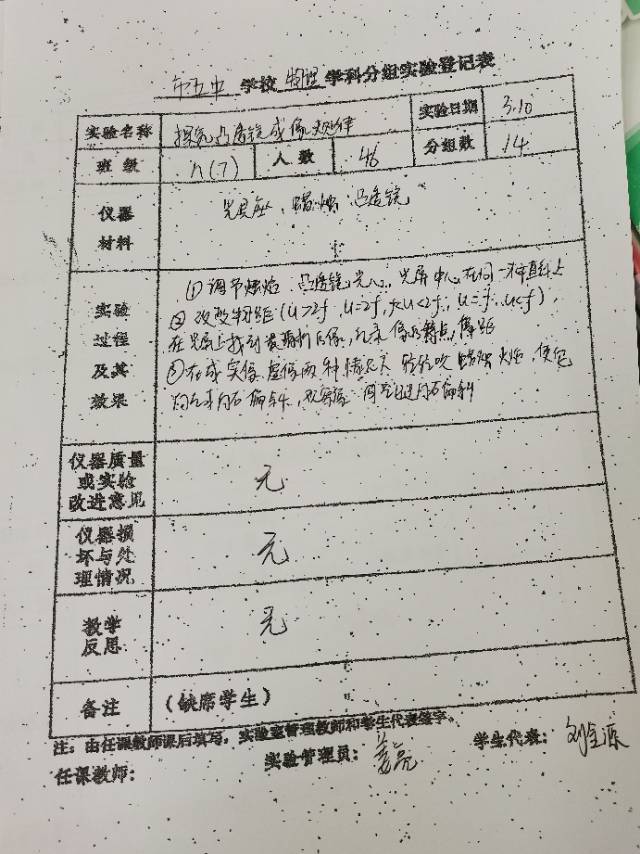 市五中 学校 物理 学科分组实验登记表
实验名称 探究凸透镜成像规律 实验日期 3.10
班级 八(7) 人数 46 分组数 14
仪器材料 光具座、蜡烛、凸透镜
实验过程及其效果 ① 调节烛焰、凸透镜 光屏中心在同一水平直线上
② 改变物距(u>2f、u=2f、f<u<2f、u=f、u<f),
在光屏上找到清晰的像,记录像的特点,像距
③ 在成实像、虚像两种情况下 轻轻吹蜡烛火焰,使
向左或向右偏斜,观察像
仪器质量或实验改进意见 无
仪器损坏与处理情况 无
教学反思 无
备注 (缺席学生)
注:由任课教师课后填写,实验室管理教师和学生代表签字。
任课教师: 实验管理员:姜亮 学生代表:刘